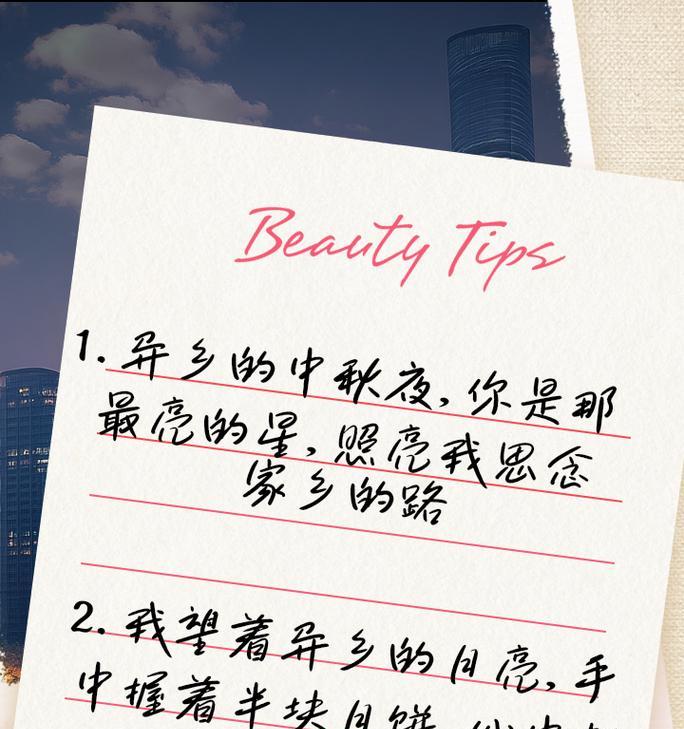 Beauty Tips
1. 异乡的中秋夜,你是那
最亮的星,照亮我思念
家乡的路
2. 我望着异乡的月亮,手
中握着半块月饼